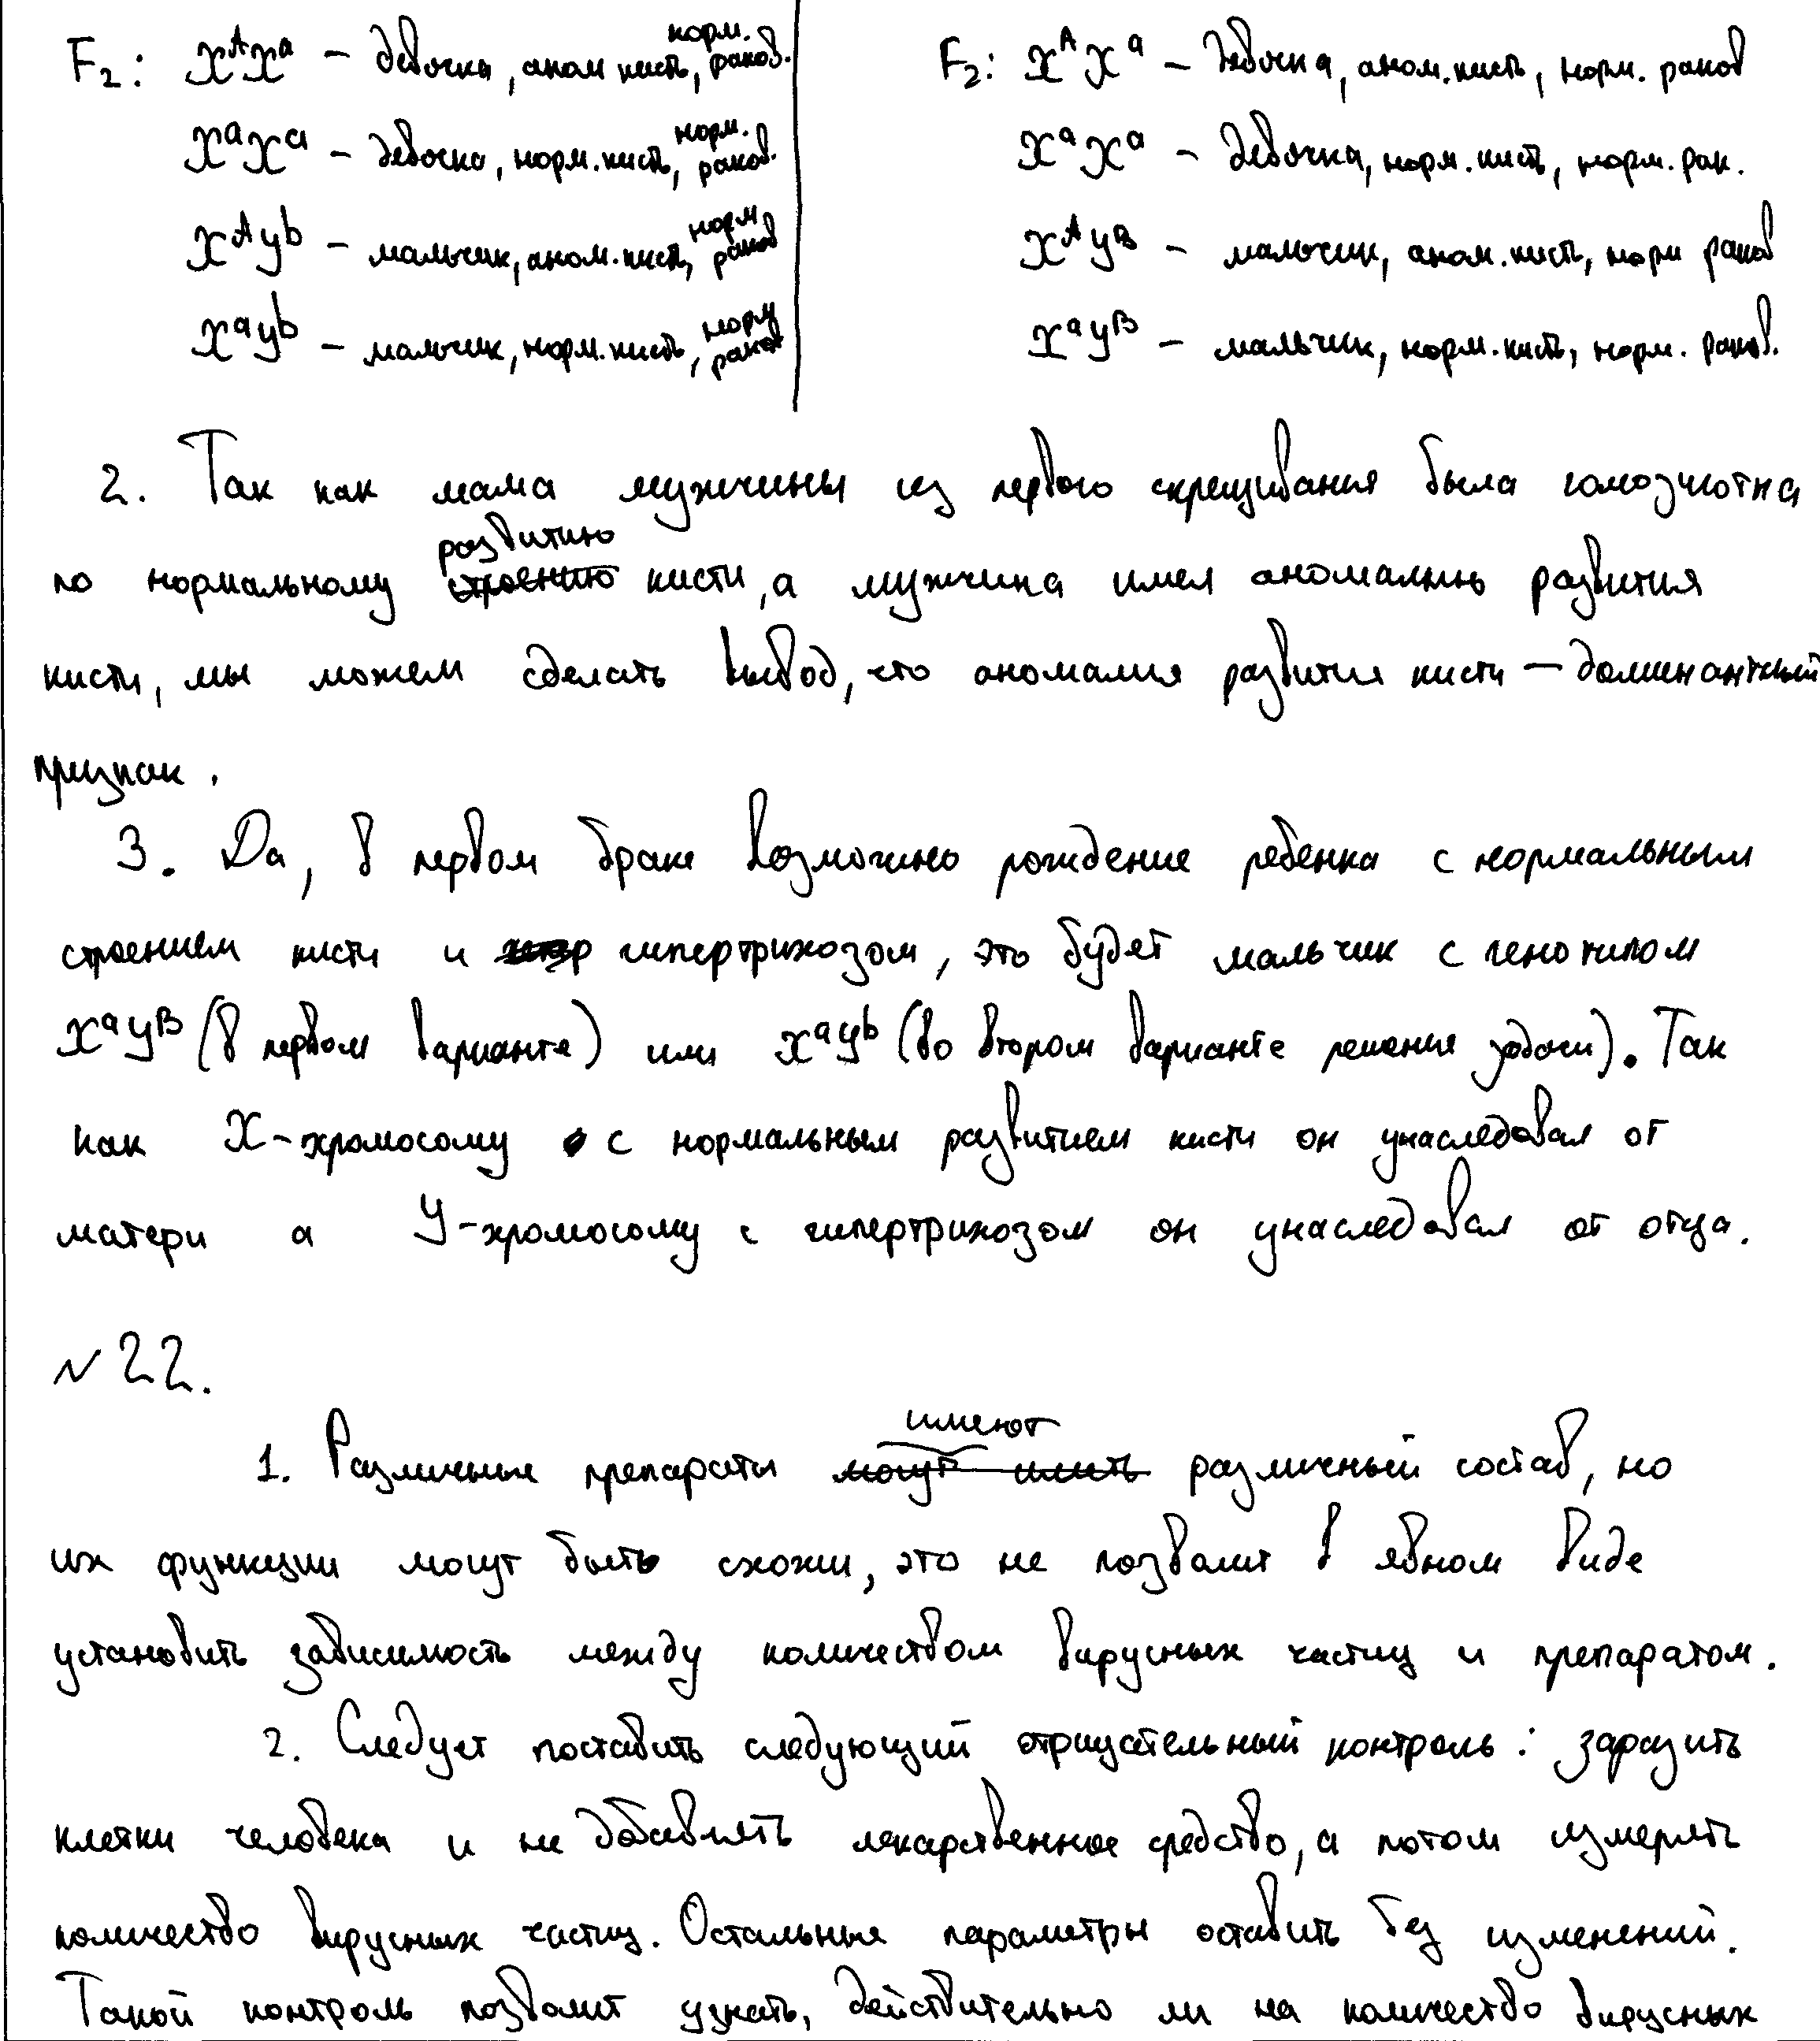 F₂: XᴬXᵃ – девочка, аном кисть, норм. раков.
XᵃXᵃ – девочка, норм. кисть, норм. раков.
XᴬYᵇ – мальчик, аном. кисть, норм. раков
XᵃYᵇ – мальчик, норм. кисть, норм раков
F₂: XᴬXᵃ – девочка, аном. кисть, норм. раков
XᵃXᵃ – девочка, норм. кисть, норм. рак.
XᴬYᴮ – мальчик, аном. кисть, норм раков
XᵃYᴮ – мальчик, норм. кисть, норм. раков.
2. Так как мама мужчины из первого скрещивания была гомозиготна
по нормальному развитию кисти, а мужчина имел аномалию развития
кисти, мы можем сделать вывод, что аномалия развития кисти – доминантный
признак.
3. Да, в первом браке возможно рождение ребенка с нормальным
строением кисти и гипертрихозом, это будет мальчик с генотипом
XᵃYᴮ (в первом варианте) или XᵃYᵇ (во втором варианте решения задачи). Так
как X-хромосому с нормальным развитием кисти он унаследовал от
матери а Y-хромосому с гипертрихозом он унаследовал от отца.
№22.
1. Различные препараты имеют различный состав, но
их функции могут быть схожи, это не позволит в явном виде
установить зависимость между количеством вирусных частиц и препаратом.
2. Следует поставить следующий отрицательный контроль: заразить
клетки человека и не добавлять лекарственное средство, а потом измерять
количество вирусных частиц. Остальные параметры оставить без изменений.
Такой контроль позволит узнать, действительно ли на количество вирусных